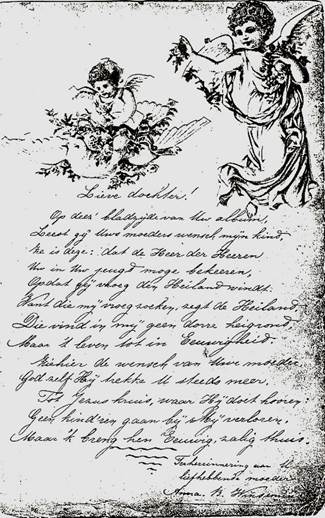 Lieve dochter!
Op deez' bladzijde van Uw album,
Leest gij Uws moeders wensch mijn kind,
Ze is deze: dat de Heer der Heeren
Uw in Uw jeugd moge bekeeren,
Opdat gij vroeg den Heiland vindt.
Want die mij vroeg zoeken, zegt de Heiland
Die vind in mij geen dorre heigrond
Maar 't leven tot in Eeuwigheid
Ziehier de wensch van Uwe moeder
God zelf Hij trekke U steeds meer,
Tot Jezus kruis, waar Hij doet hooren
Geen kind'ren gaan bij Mij verloren,
Maar 'k breng hen Eeuwig, zalig thuis.
Ter herinnering aan U
liefhebbende moeder
Anna. K.